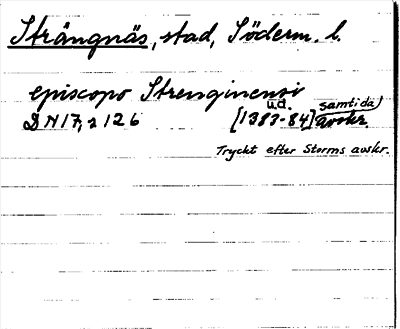 Strängnäs, stad, Söderm. l.
episcopo Strenginensi
u.d. samtida
DN 17, s 126 [1383-84] avskr.
Tryckt efter Storms avskr.